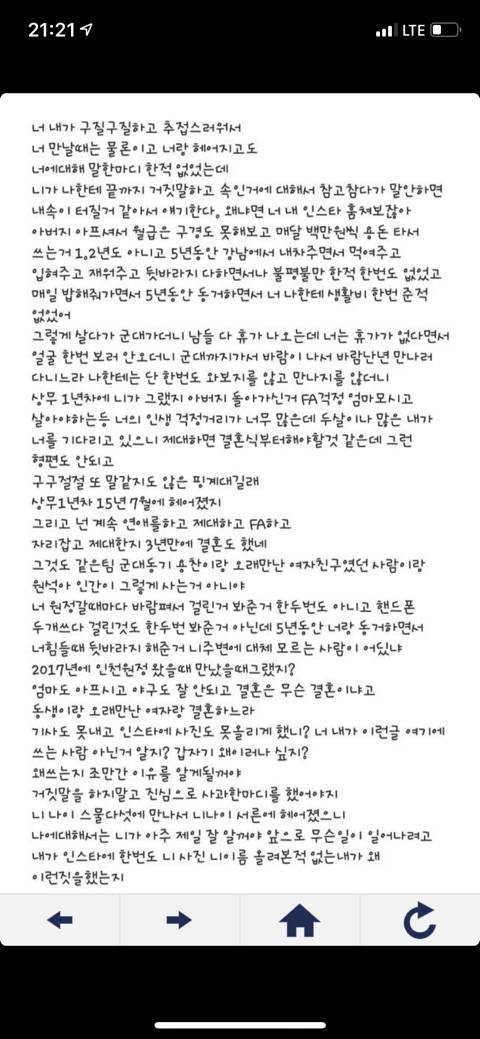 21:21
LTE
너 내가 구질구질하고 추접스러워서
너 만날때는 물론이고 너랑 헤어지고도
너에대해 말한마디 한적 없었는데
니가 나한테 끝까지 거짓말하고 속인거에 대해서 참고참다가 말안하면
내속이 터질거 같아서 얘기한다. 왜냐면 너 내 인스타 훔쳐보잖아
아버지 아프셔서 월급은 구경도 못해보고 매달 백만원씩 용돈 타서
쓰는거 1.2년도 아니고 5년동안 강남에서 내차주면서 먹여주고
입혀주고 재워주고 뒷바라지 다하면서나 불평불만 한적 한번도 없었고
매일 밥해줘가면서 5년동안 동거하면서 너 나한테 생활비 한번 준적
없었어
그렇게 살다가 군대가더니 남들 다 휴가 나오는데 너는 휴가가 없다면서
얼굴 한번 보러 안오더니 군대까지가서 바람이 나서 바람난년 만나러
다니느라 나한테는 단 한번도 와보지를 않고 만나지를 않더니
상무 1년차에 니가 그랬지 아버지 돌아가신거 FA걱정 엄마모시고
살아야하는등 너의 인생 걱정거리가 너무 많은데 두살이나 많은 내가
너를 기다리고 있으니 제대하면 결혼식부터해야할것 같은데 그런
형편도 안되고
구구절절 또 말같지도 않은 핑계대길래
상무1년차 15년 7월에 헤어졌지
그리고 넌 계속 연애를하고 제대하고 FA하고
자리잡고 제대한지 3년만에 결혼도 했네
그것도 같은팀 군대동기 용찬이랑 오래만난 여자친구였던 사람이랑
원석아 인간이 그렇게 사는거 아니야
너 원정갈때마다 바람펴서 걸린거 봐준거 한두번도 아니고 핸드폰
두개쓰다 걸린것도 한두번 봐준거 아닌데 5년동안 너랑 동거하면서
너힘들때 뒷바라지 해준거 니주변에 대체 모르는 사람이 어딨냐
2017년에 인천원정 왔을때 만났을때그랬지?
엄마도 아프시고 야구도 잘 안되고 결혼은 무슨 결혼이냐고
동생이랑 오래만난 여자랑 결혼하느라
기사도 못내고 인스타에 사진도 못올리게 했니? 너 내가 이런글 여기에
쓰는 사람 아닌거 알지? 갑자기 왜이러나 싶지?
왜쓰는지 조만간 이유를 알게될꺼야
거짓말을 하지말고 진심으로 사과한마디를 했어야지
니 나이 스물다섯에 만나서 니나이 서른에 헤어졌으니
나에대해서는 니가 아주 제일 잘 알꺼야 앞으로 무슨일이 일어나려고
내가 인스타에 한번도 니 사진 니이름 올려본적 없는내가 왜
이런짓을했는지